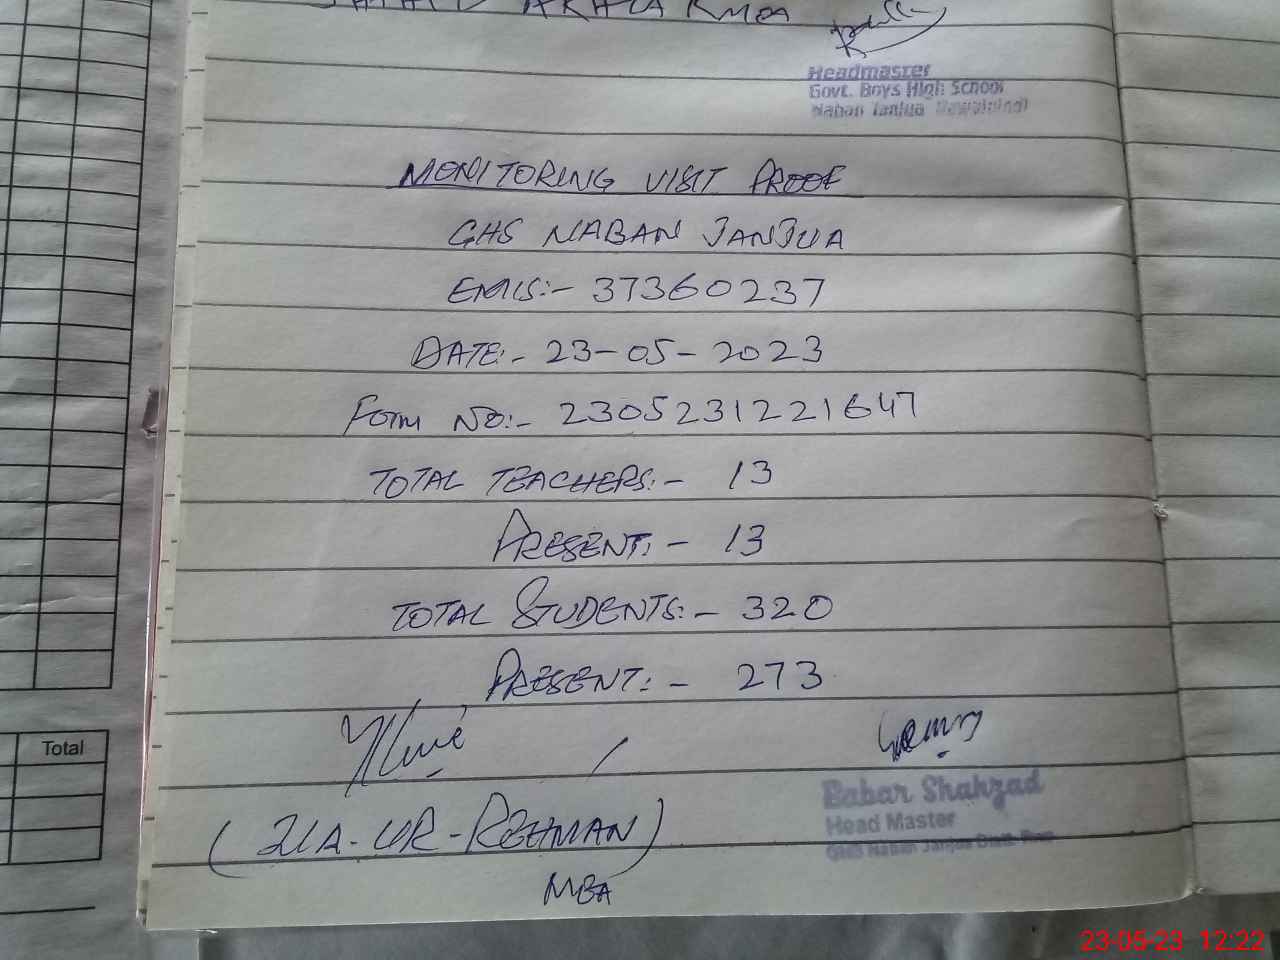 Headmaster
Govt. Boys High School
Naban Janjua Rawalpindi
MONITORING VISIT PROOF
GHS NABAN JANJUA
EMIS:- 37360237
DATE:- 23-05-2023
Form No:- 2305231221647
TOTAL TEACHERS:- 13
PRESENT:- 13
TOTAL STUDENTS:- 320
PRESENT:- 273
Babar Shahzad
Head Master
GHS Naban Janjua Distt. Rwp
(ZIA-UR-REHMAN)
MBA
Total
23-05-23 12:22